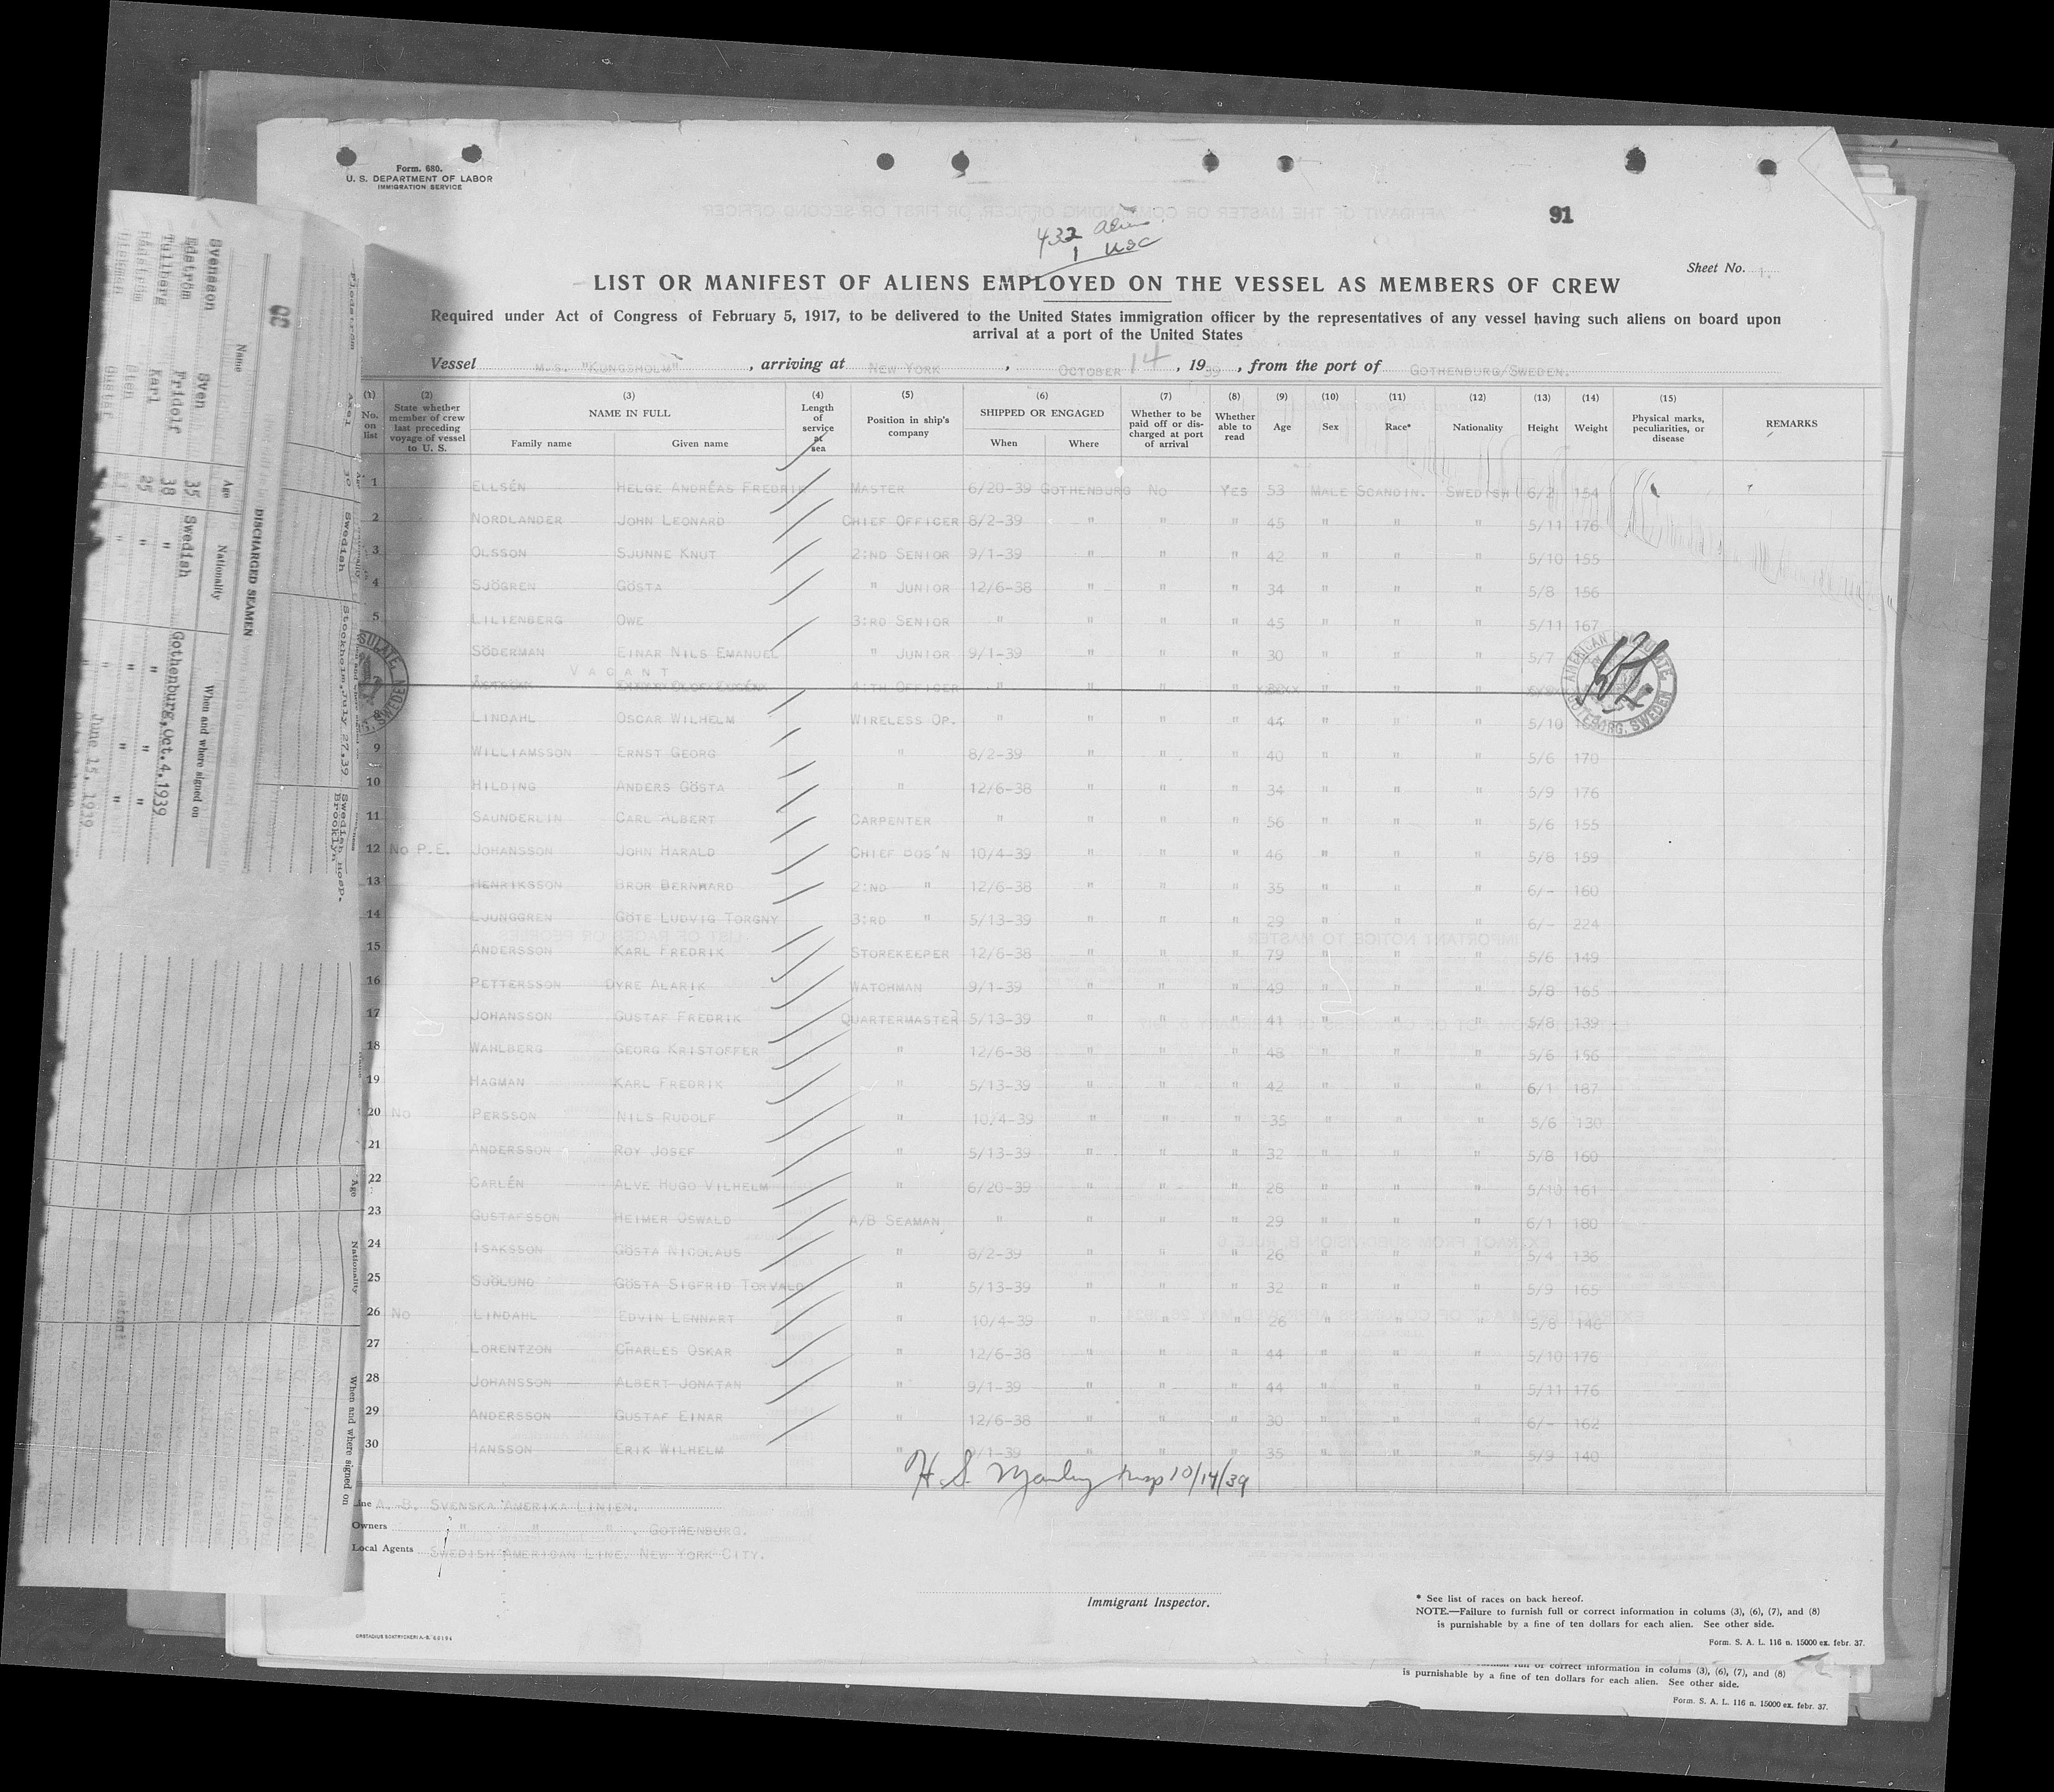 Form. 680.
U. S. DEPARTMENT OF LABOR
IMMIGRATION SERVICE
91
432 alien
1 USC
Sheet No. 1.
LIST OR MANIFEST OF ALIENS EMPLOYED ON THE VESSEL AS MEMBERS OF CREW
Required under Act of Congress of February 5, 1917, to be delivered to the United States immigration officer by the representatives of any vessel having such aliens on board upon
arrival at a port of the United States
Vessel M.S. "KUNGSHOLM", arriving at NEW YORK, OCTOBER 14, 1939, from the port of GOTHENBURG/SWEDEN.
(1) No. on list (2) State whether member of crew last preceding voyage of vessel to U. S. (3) NAME IN FULL Family name Given name (4) Length of service at sea (5) Position in ship's company (6) SHIPPED OR ENGAGED When Where (7) Whether to be paid off or discharged at port of arrival (8) Whether able to read (9) Age (10) Sex (11) Race* (12) Nationality (13) Height (14) Weight (15) Physical marks, peculiarities, or disease REMARKS
1 ELLSÉN HELGE ANDRÉAS FREDRIK MASTER 6/20-39 GOTHENBURG NO YES 53 MALE SCANDIN. SWEDISH 6/2 154
2 NORDLANDER JOHN LEONARD CHIEF OFFICER 8/2-39 " " " 45 " " " 5/11 176
3 OLSSON SJUNNE KNUT 2:ND SENIOR 9/1-39 " " " 42 " " " 5/10 155
4 SJÖGREN GÖSTA " JUNIOR 12/6-38 " " " 34 " " " 5/8 156
5 LILIENBERG OWE 3:RD SENIOR " " " " 45 " " " 5/11 167
6 SÖDERMAN EINAR NILS EMANUEL " JUNIOR 9/1-39 " " " 30 " " " 5/7
7 VACANT 4:TH OFFICER " " " " " " "
8 LINDAHL OSCAR WILHELM WIRELESS OP. " " " " 44 " " " 5/10
9 WILLIAMSSON ERNST GEORG " 8/2-39 " " " 40 " " " 5/6 170
10 HILDING ANDERS GÖSTA " 12/6-38 " " " 34 " " " 5/9 176
11 SAUNDERLIN CARL ALBERT CARPENTER " " " " 56 " " " 5/6 155
12 NO P.E. JOHANSSON JOHN HARALD CHIEF BOS'N 10/4-39 " " " 46 " " " 5/8 159
13 HENRIKSSON BROR BERNHARD 2:ND " 12/6-38 " " " 35 " " " 6/- 160
14 LJUNGGREN GÖTE LUDVIG TORGNY 3:RD " 5/13-39 " " " 29 " " " 6/- 224
15 ANDERSSON KARL FREDRIK STOREKEEPER 12/6-38 " " " 79 " " " 5/6 149
16 PETTERSSON DYRE ALARIK WATCHMAN 9/1-39 " " " 49 " " " 5/8 165
17 JOHANSSON GUSTAF FREDRIK QUARTERMASTER 5/13-39 " " " 41 " " " 5/8 139
18 WAHLBERG GEORG KRISTOFFER " 12/6-38 " " " 48 " " " 5/6 156
19 HAGMAN KARL FREDRIK " 5/13-39 " " " 42 " " " 6/1 187
20 NO PERSSON NILS RUDOLF " 10/4-39 " " " 35 " " " 5/6 130
21 ANDERSSON ROY JOSEF " 5/13-39 " " " 32 " " " 5/8 160
22 CARLÉN ALVE HUGO VILHELM " 6/20-39 " " " 28 " " " 5/10 161
23 GUSTAFSSON HEIMER OSWALD A/B SEAMAN " " " " 29 " " " 6/1 180
24 ISAKSSON GÖSTA NICOLAUS " 8/2-39 " " " 26 " " " 5/4 136
25 SJÖLUND GÖSTA SIGFRID TORVALD " 5/13-39 " " " 32 " " " 5/9 165
26 NO LINDAHL EDVIN LENNART " 10/4-39 " " " 26 " " " 5/8 146
27 LORENTZON CHARLES OSKAR " 12/6-38 " " " 44 " " " 5/10 176
28 JOHANSSON ALBERT JONATAN " 9/1-39 " " " 44 " " " 5/11 176
29 ANDERSSON GUSTAF EINAR " 12/6-38 " " " 30 " " " 6/- 162
30 HANSSON ERIK WILHELM " 9/1-39 " " " 35 " " " 5/9 140
AMERICAN CONSULATE
GOTEBORG, SWEDEN
H. S. Manley Insp 10/14/39
Line A.-B. SVENSKA AMERIKA LINIEN.
Owners " " " . GOTHENBURG.
Local Agents SWEDISH AMERICAN LINE. NEW YORK CITY.
Immigrant Inspector.
* See list of races on back hereof.
NOTE.—Failure to furnish full or correct information in colums (3), (6), (7), and (8)
is punishable by a fine of ten dollars for each alien. See other side.
Form. S. A. L. 116 n. 15000 ex. febr. 37.
full or correct information in colums (3), (6), (7), and (8)
is punishable by a fine of ten dollars for each alien. See other side.
Form. S. A. L. 116 n. 15000 ex. febr. 37.
DISCHARGED SEAMEN
Name Age Nationality When and where signed on
Svensson Sven 35 Swedish Gothenburg, Oct. 4, 1939
Fridolf 38 " "
Tullberg Karl 25 " "
June 15, 1939
Swedish Stockholm, July 27.39 Swedish Hosp. Brooklyn
Age Nationality When and where signed on